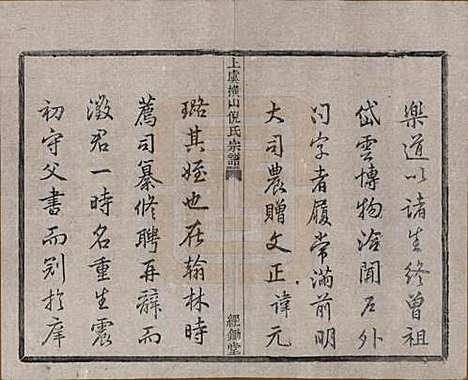 樂道以諸生終曾祖
岱雲博物洽聞戶外
问字者履常滿前明
大司農贈文正諱元
上虞横山倪氏宗譜
經鋤堂
璐其姪也在翰林時
薦司纂修聘再辭而
澂君一時名重生震
初守父書而别於庠